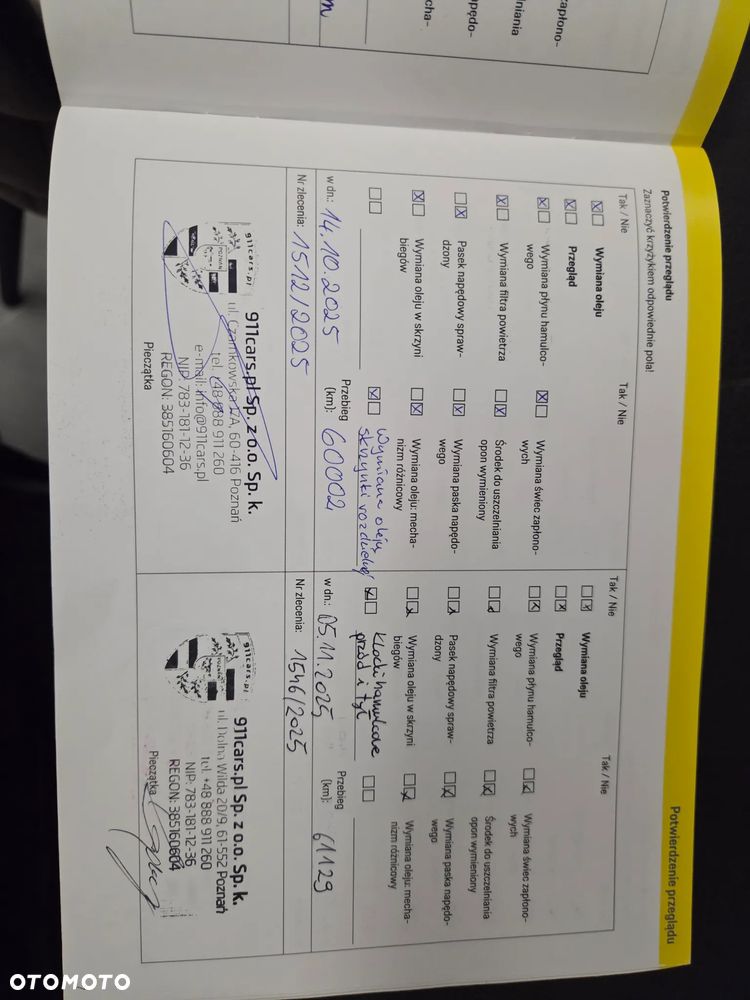 Potwierdzenie przeglądu
Potwierdzenie przeglądu
Zaznaczyć krzyżykiem odpowiednie pola!
Tak / Nie
Tak / Nie
Wymiana oleju
Przegląd
Wymiana płynu hamulco-
wego
Wymiana świec zapłono-
wych
Wymiana filtra powietrza
Środek do uszczelniania
opon wymieniony
Pasek napędowy spraw-
dzony
Wymiana paska napędo-
wego
Wymiana oleju w skrzyni
biegów
Wymiana oleju: mecha-
nizm różnicowy
Wymiana oleju
skrzynki rozdzielczej
w dn.: 14.10.2025
Przebieg
(km): 60002
Nr zlecenia: 1512/2025
911cars.pl
POZNAŃ
911cars.pl Sp. z o.o. Sp. k.
ul. Czarnkowska 17A, 60-416 Poznań
tel. +48 888 911 260
e-mail: info@911cars.pl
NIP: 783-181-12-36
REGON: 385160604
Pieczątka
Tak / Nie
Tak / Nie
Wymiana oleju
Przegląd
Wymiana płynu hamulco-
wego
Wymiana świec zapłono-
wych
Wymiana filtra powietrza
Środek do uszczelniania
opon wymieniony
Pasek napędowy spraw-
dzony
Wymiana paska napędo-
wego
Wymiana oleju w skrzyni
biegów
Wymiana oleju: mecha-
nizm różnicowy
Klocki hamulcowe
przód i tył
w dn.: 05.11.2025
Przebieg
(km): 61129
Nr zlecenia: 1546/2025
911cars.pl
POZNAŃ
911cars.pl Sp. z o.o. Sp. k.
ul. Dolna Wilda 20/9, 61-552 Poznań
tel. +48 888 911 260
NIP: 783-181-12-36
REGON: 385160604
Pieczątka
zapłono-
lniania
pędo-
cha-
OTOMOTO